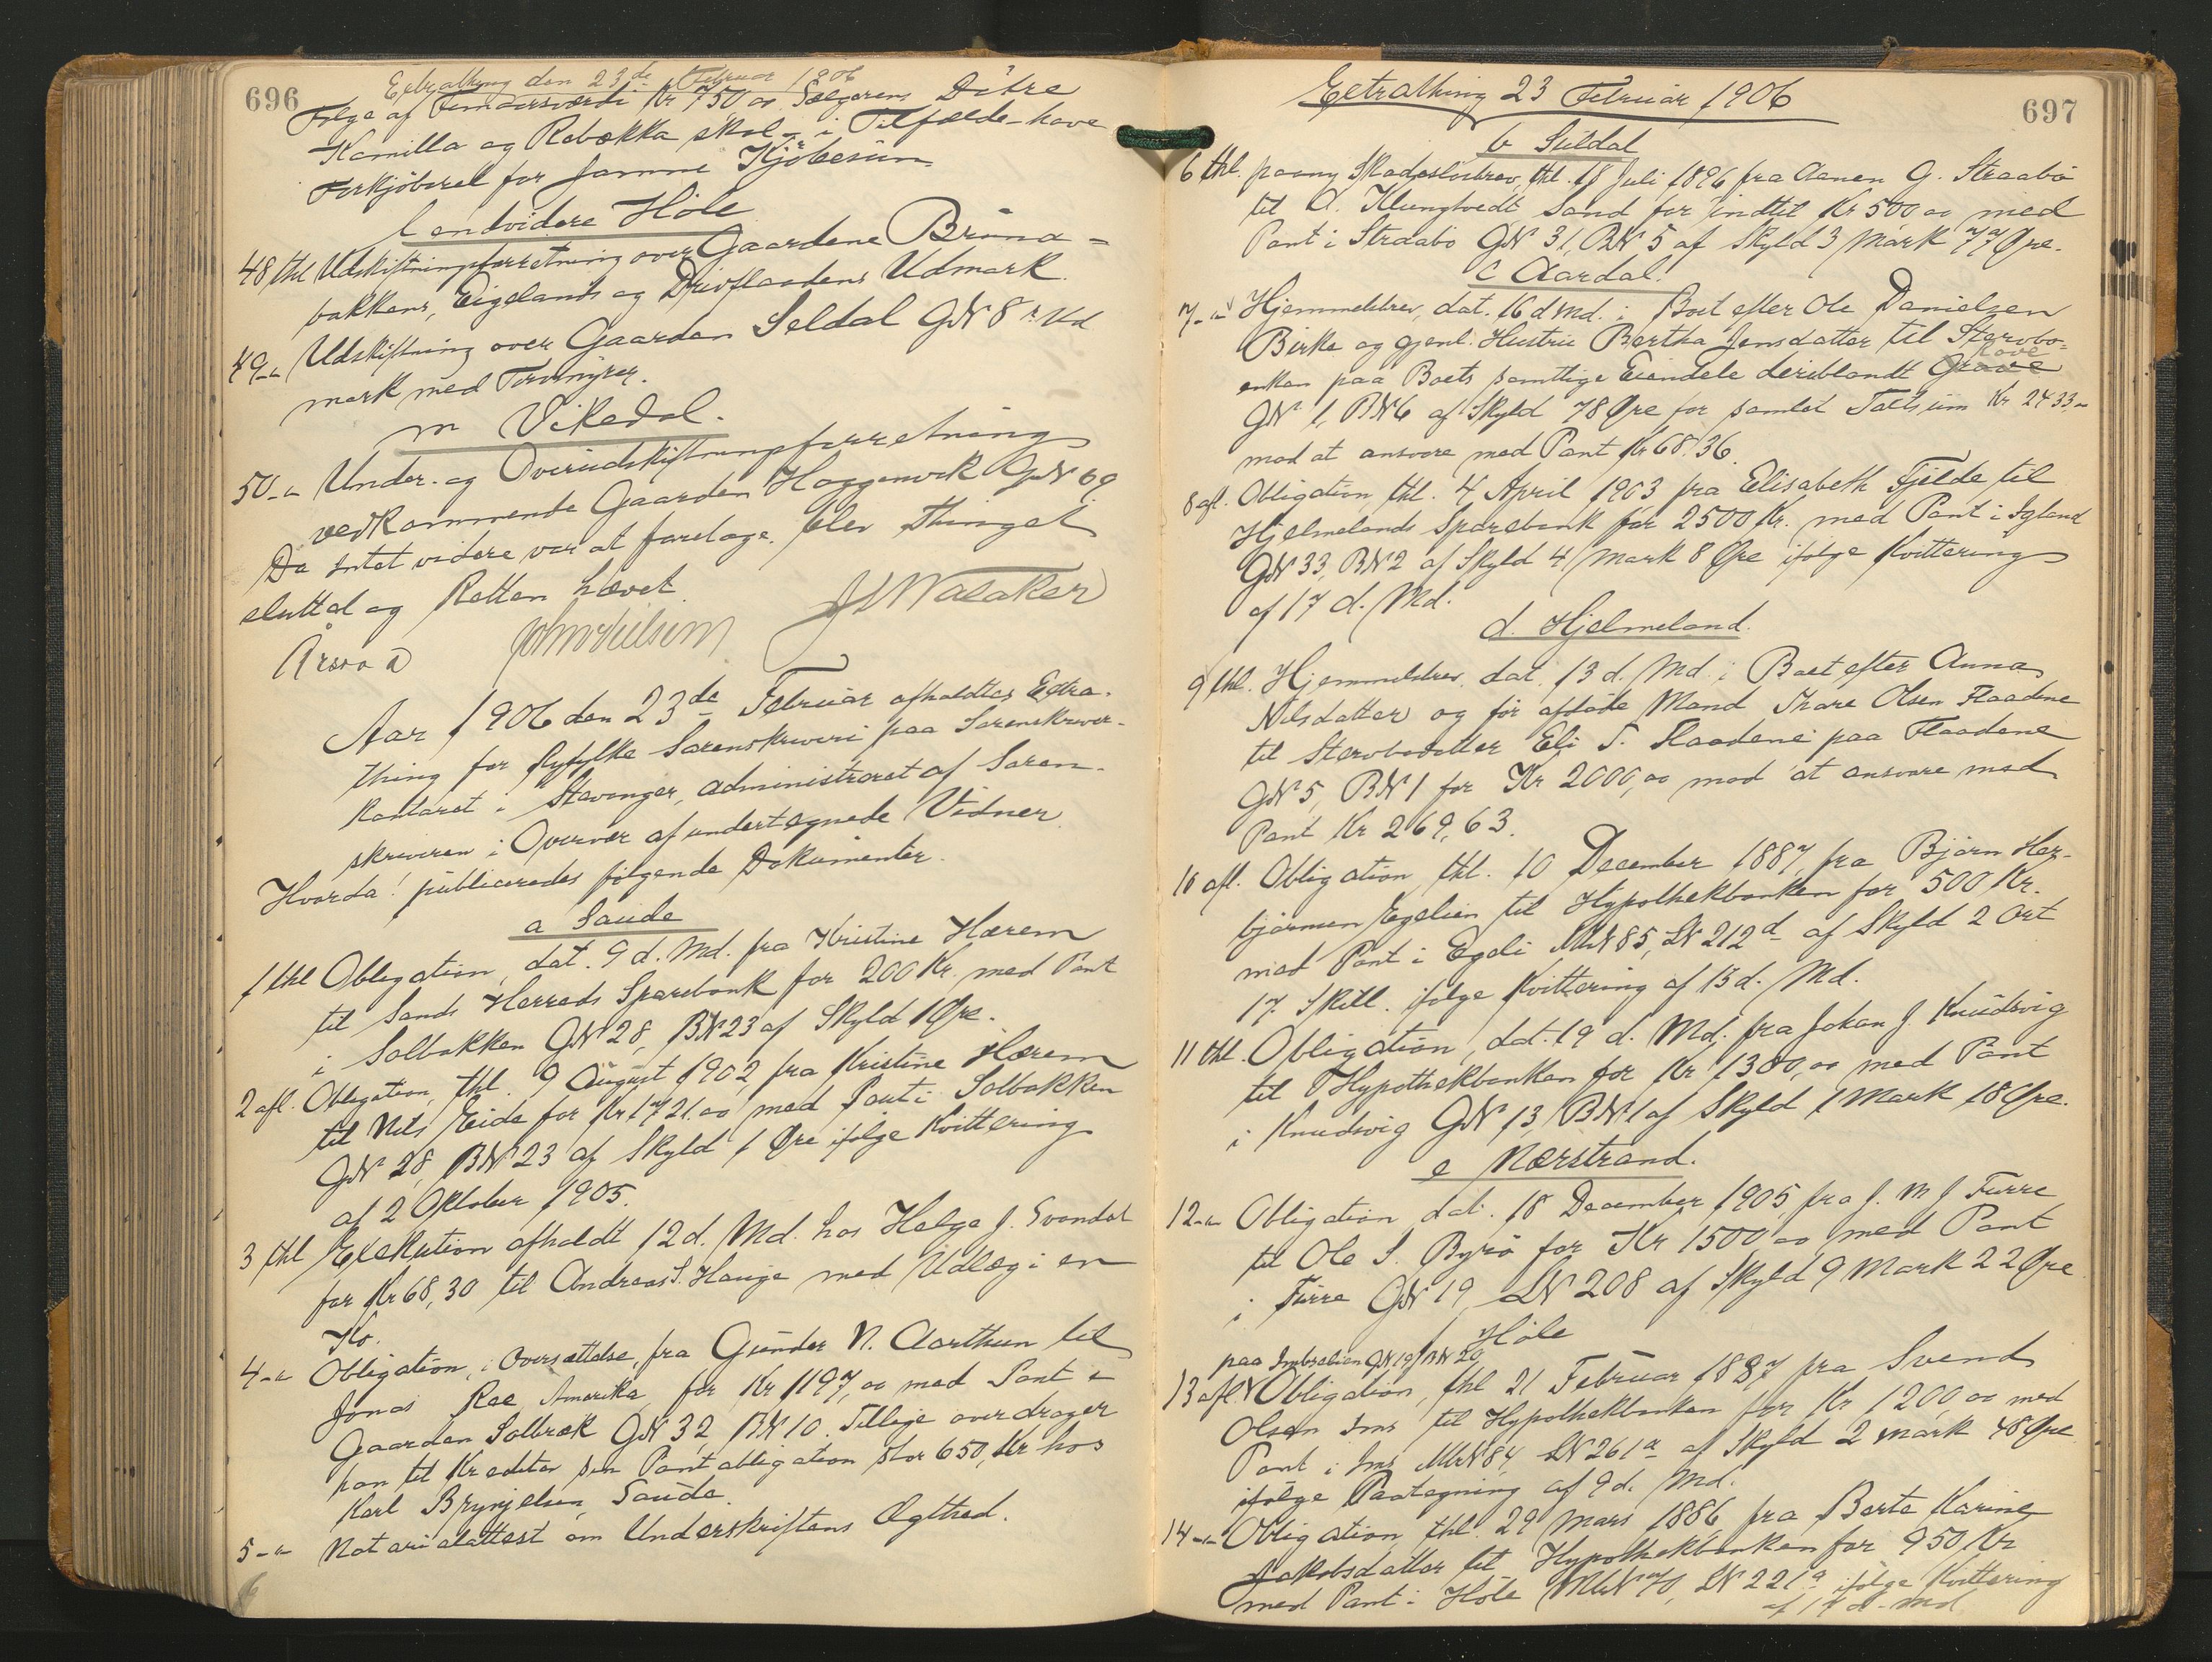 696
Extrathing den 23de Februar 1906
Følge af Femaarsværdi Kr 750 00 Sælgerens Døtre
Kamilla og Rebekka skal i Tilfælde have
Forkjøbsret for samme Kjøbesum
l endvidere Høle
48 thl Udskiftningsforretning over Gaardene Bruna-
bakkens, Eigelands og Drivflaadens Udmark.
49 -"- Udskiftning over Gaarden Seldal GN 8's Ud
mark med Torvmyrer.
m Vikedal.
50 -"- Under- og Overudskiftningsforretning
vedkommende Gaarden Haggenvik GN 69
Da Intet videre var at foretage, blev Thinget
sluttet og Retten hævet.
Aar 1906 den 23de Februar afholdtes Extra-
thing for Ryfylke Sorenskriveri paa Sorenskriver-
kontoret i Stavanger, administreret af Soren-
skriveren i Overvær af undertegnede Vidner.
Hvorda! publiceredes følgende Dokumenter.
a Saude
1 thl Obligation, dat. 9 d. Md. fra Kristine Hærem
til Sands Herreds Sparebank for 200 Kr. med Pant
i Solbakken GN 28, BN 23 af Skyld 1 Øre.
2 afl. Obligation, thl. 9 August 1902 fra Kristine Hærem
til Nils Eide for Kr 1721.00 med Pant i Solbakken
GN 28, BN 23 af Skyld 1 Øre ifølge Kvittering
af 2 Oktober 1905.
3 thl Exekution afholdt 12 d. Md. hos Helge J. Svandal
for Kr 68,30 til Andreas S. Hauge med Udlæg i en
Ko.
4 -"- Obligation, i Oversættelse, fra Gunder N. Aarthun til
Jonas Rae, Amerika, for Kr 1197,00 med Pant i
Gaarden Solbræk GN 32, BN 10. Tillige overdrager
han til Kreditor sin Pantobligation stor 650, Kr hos
Karl Brynjelsen, Saude.
5 -"- Notarialattest om Underskriftens Ægthed.
Extrathing 23 Februar 1906
697
b Suldal
6 thl. paany Skadesløsbrev, thl. 18 Juli 1896 fra Aanen G. Straabø
til O. Klungtvedt Sand for indtil Kr 500 00 med
Pant i Straabø GN 31, BN 5 af Skyld 3 Mark 77 Øre.
c Aardal.
7 -"- Hjemmelsbrev, dat. 16 d Md. i Boet efter Ole Danielsen
Birke og gjenl. Hustru Bertha Jensdatter til Stervbo-
enken paa Boets samtlige Eiendele deriblandt Grave
GN 1, BN 6 af Skyld 78 Øre for samlet Taxtsum Kr 2433,-
mod at ansvare med Pant Kr 68.36.
8 afl. Obligation, thl. 4 April 1903 fra Elisabeth Fjelde til
Hjelmelands Sparebank for 2500 Kr. med Pant i Igland
GN 33, BN 2 af Skyld 4 Mark 8 Øre ifølge Kvittering
af 17 d. Md.
d. Hjelmeland.
9 thl. Hjemmelsbrev, dat. 13 d. Md. i Boet efter Anna
Nilsdatter og før afdøde Mand Thore Olsen Flaadene
til Stervbodatter Eli T. Flaadene paa Flaadene
GN 5, BN 1 for Kr 2000,00 mod at ansvare med
Pant Kr 269,63.
10 afl. Obligation, thl. 10 December 1887, fra Bjørn Her-
bjørnsen Egelien til Hypothekbanken for 500 Kr.
med Pant i Egeli MN 85, LN 212d af Skyld 2 Ort
17 Skill. ifølge Kvittering af 13 d. Md.
11 thl. Obligation, dat. 19 d. Md. fra Johan J. Knudsvig
til Hypothekbanken for Kr 1300,00 med Pant
i Knudsvig GN 13, BN 1 af Skyld 1 Mark 18 Øre.
e Nærstrand.
12 -"- Obligation dat. 18 December 1905, fra J. M J Furre
til Ole S. Byrø for Kr 1500 00 med Pant
i Furre GN 19, LN 208 af Skyld 9 Mark 22 Øre
f Høle
paa Imbrelien GN 19 BN 20
13 afl. Obligation, thl 21 Februar 1887 fra Svend
Olsen Ims til Hypothekbanken for Kr 1200,00 med
Pant i Ims MN 84, LN 261a af Skyld 2 Mark 48 Øre
ifølge Paategning af 9 d. Md.
14 -"- Obligation, thl. 29 Mars 1886 fra Berte Karine
Jakobsdatter til Hypothekbanken for 950 Kr
med Pant i Høle MN 70, LN 221a ifølge Kvittering
af 14 d. Md.